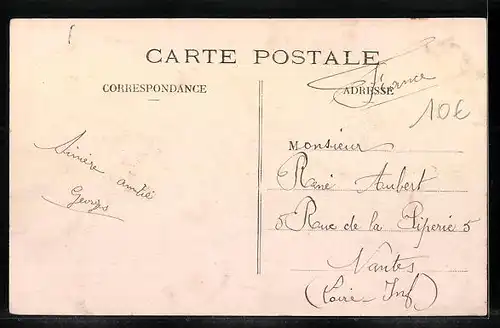 CARTE POSTALE
CORRESPONDANCE
ADRESSE
France
10€
Sinière amitié
Georges
Monsieur
René Aubert
5 Rue de la Piperie 5
Nantes
(Loire Inf)